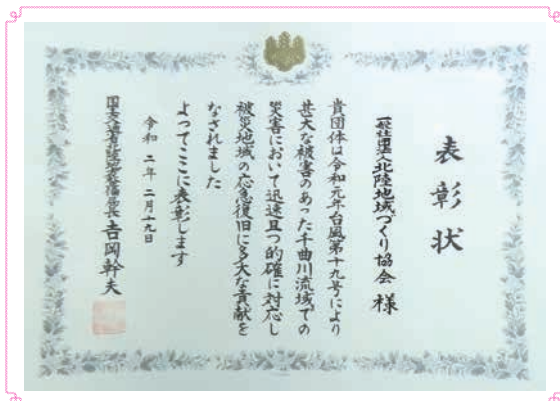 表彰状
一般社団法人北陸地域づくり協会 様
貴団体は令和元年台風第十九号により
甚大な被害のあった千曲川流域での
災害において迅速且つ的確に対応し
被災地域の応急復旧に多大な貢献を
なされました
よってここに表彰します
令和二年二月十九日
国土交通省北陸地方整備局長 吉岡幹夫